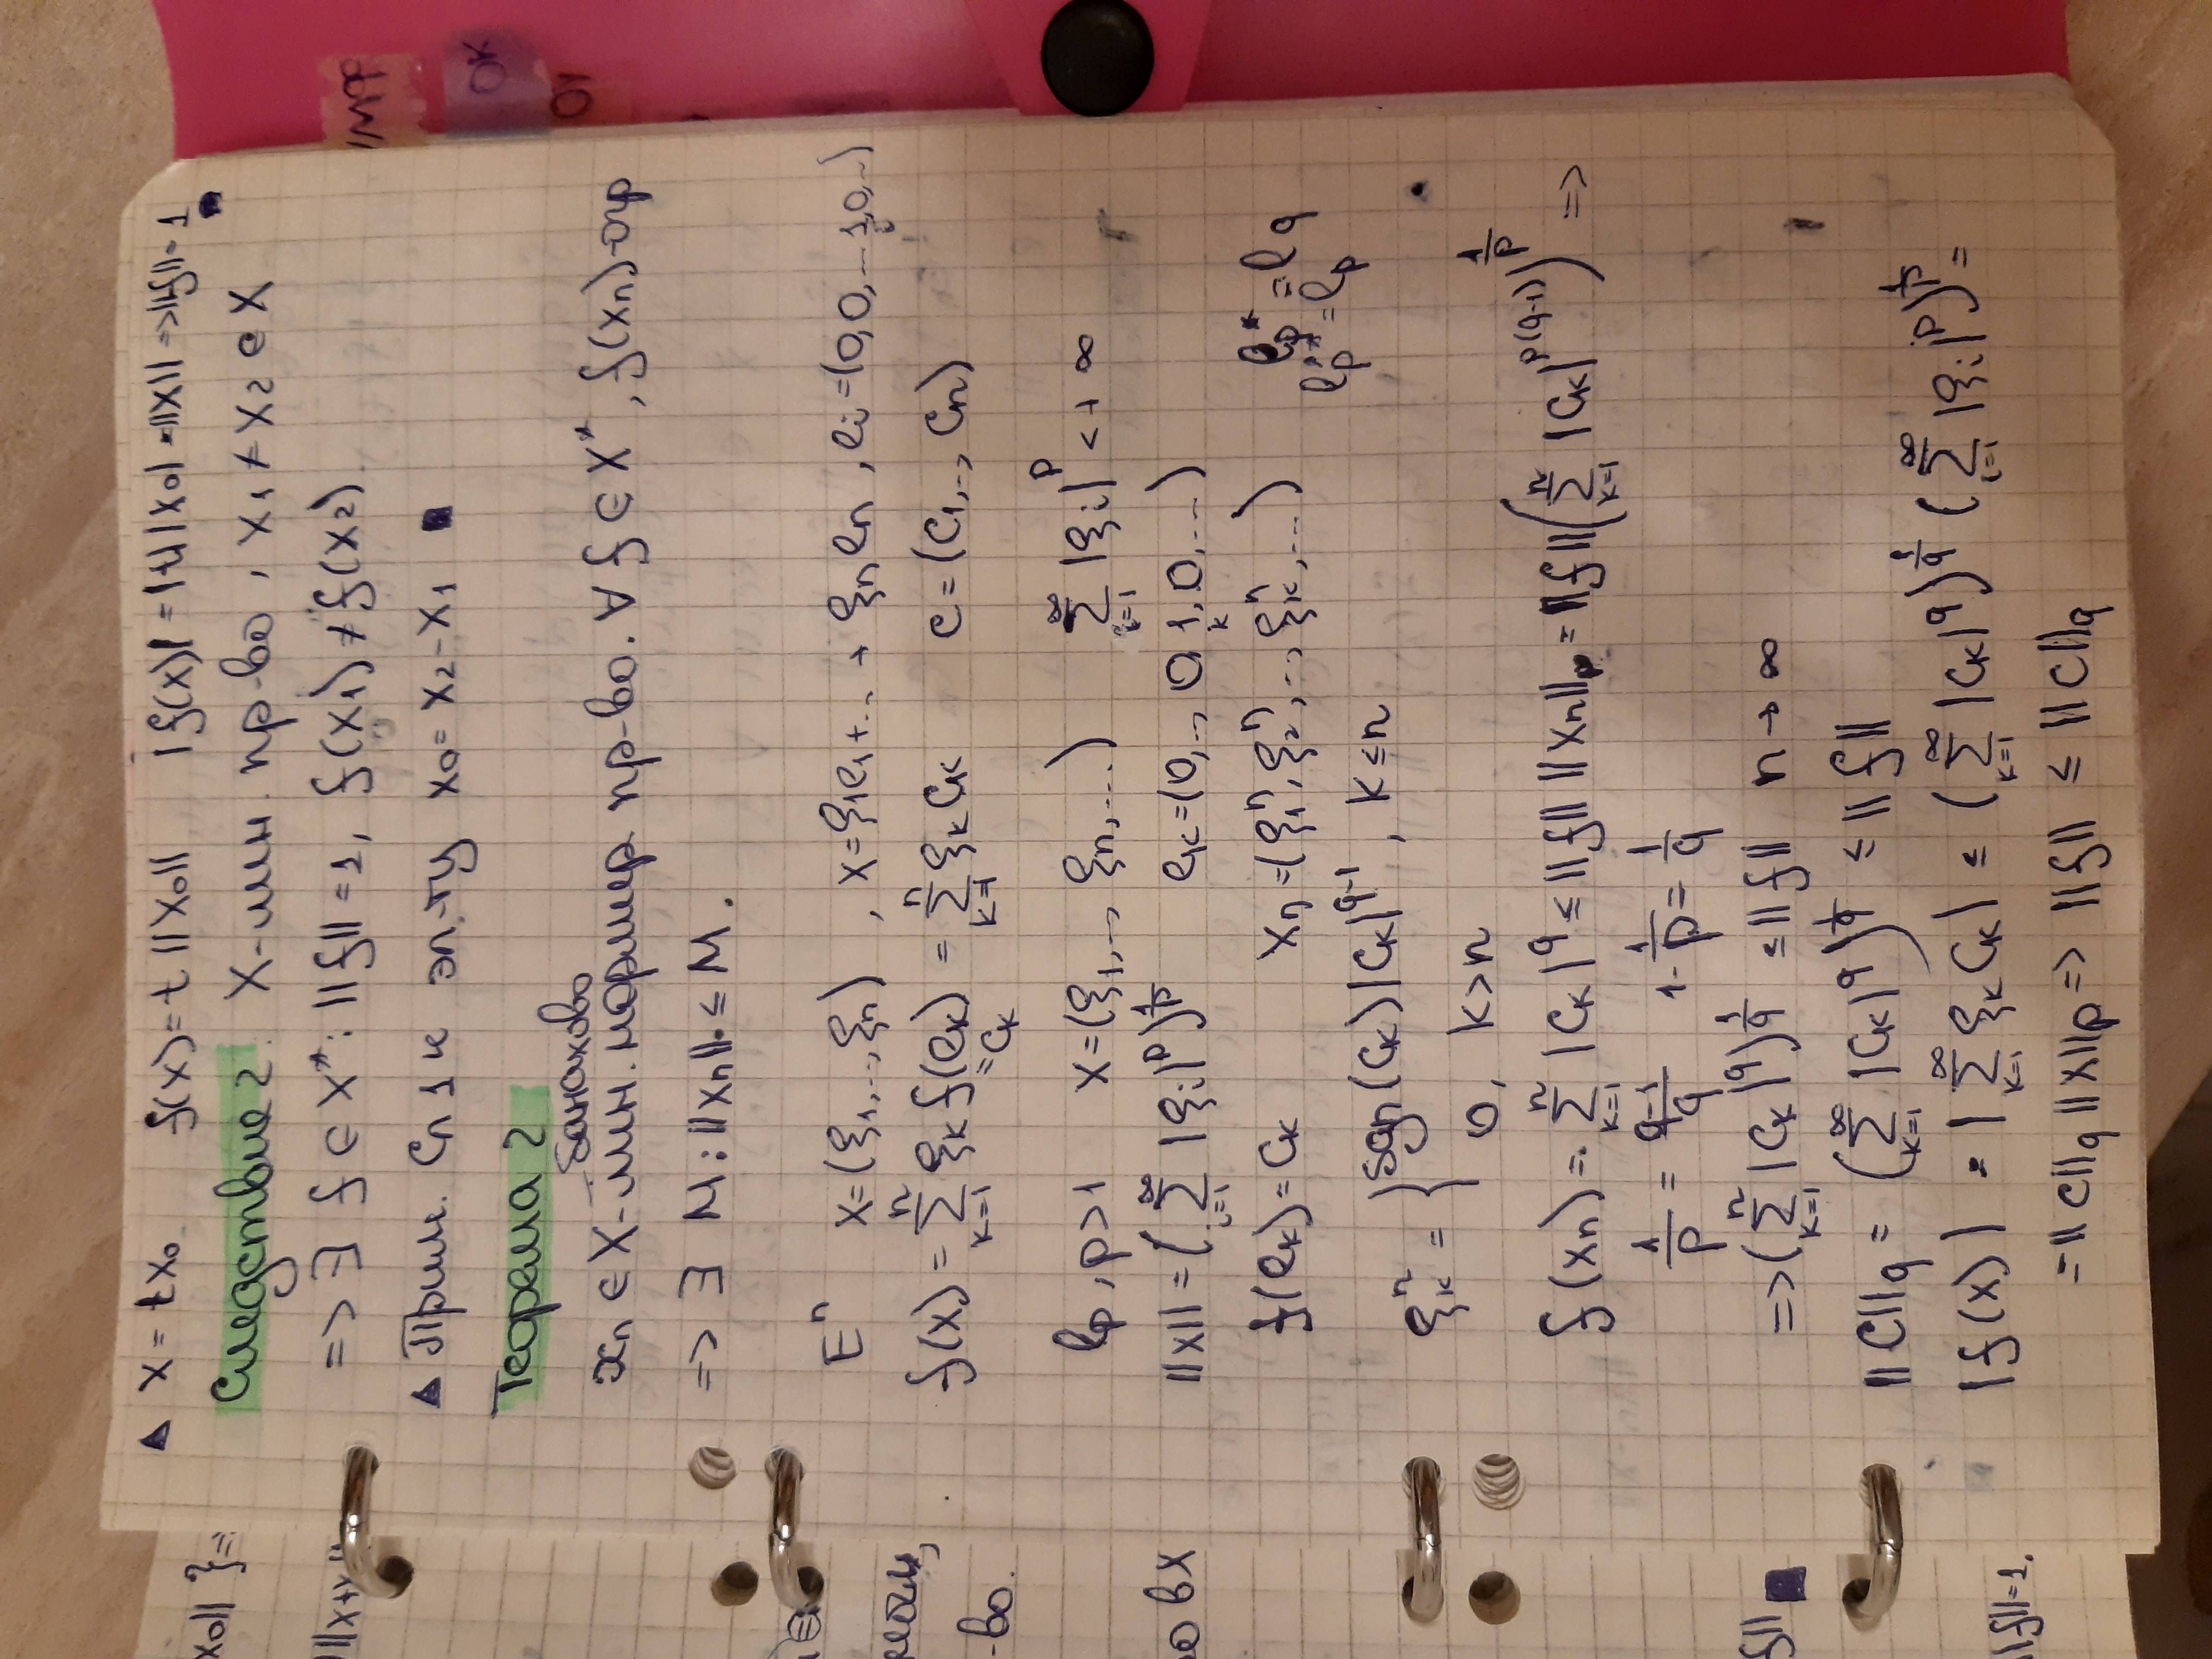 ▲ x = tx₀ f(x) = t ||x₀|| |f(x)| = |t| |x₀| = ||x|| => ||f|| = 1 ■
Следствие 2. X-лин. пр-во, x₁ ≠ x₂ ∈ X
=> ∃ f ∈ X*: ||f|| = 1, f(x₁) ≠ f(x₂)
▲ Прим. Сл 1 к эл-ту x₀ = x₂ - x₁ ■
Теорема 2
банахово
xₙ ∈ X - лин. нормир пр-во. ∀ f ∈ X*, f(xₙ) - огр
=> ∃ M: ||xₙ|| ≤ M.
Eⁿ x = (ξ₁, ..., ξₙ), x = ξ₁e₁ + ... + ξₙeₙ, eᵢ = (0, 0, ... 1, 0, ...)
f(x) = ∑ₖ₌₁ⁿ ξₖ f(eₖ) = ∑ₖ₌₁ⁿ ξₖ cₖ c = (c₁, ..., cₙ)
= cₖ
lₚ, p > 1 x = (ξ₁, ..., ξₙ, ...) ∑ᵢ₌₁^∞ |ξᵢ|ᵖ < +∞
||x|| = (∑ᵢ₌₁^∞ |ξᵢ|ᵖ)^(1/p) eₖ = (0, ..., 0, 1, 0, ...)
k
f(eₖ) = cₖ xₙ = (ξ₁ⁿ, ξ₂ⁿ, ..., ξₖⁿ, ...) lₚ* = l_q
lₚ** = lₚ
ξₖⁿ = { sgn(cₖ) |cₖ|^(q-1), k ≤ n
0, k > n
f(xₙ) = ∑ₖ₌₁ⁿ |cₖ|^q ≤ ||f|| ||xₙ||ₚ = ||f|| (∑ₖ₌₁ⁿ |cₖ|^(p(q-1)))^(1/p) =>
1/p = (q-1)/q 1 - 1/p = 1/q
=> (∑ₖ₌₁ⁿ |cₖ|^q)^(1/q) ≤ ||f|| n → ∞
||c||_q = (∑ₖ₌₁^∞ |cₖ|^q)^(1/q) ≤ ||f||
|f(x)| = |∑ₖ₌₁^∞ ξₖ cₖ| ≤ (∑ₖ₌₁^∞ |cₖ|^q)^(1/q) (∑ᵢ₌₁^∞ |ξᵢ|ᵖ)^(1/p) =
= ||c||_q ||x||ₚ => ||f|| ≤ ||c||_q
x₀|| } =
||x+y
-во.
во в X
f|| ■
||f|| = 1.
ОК